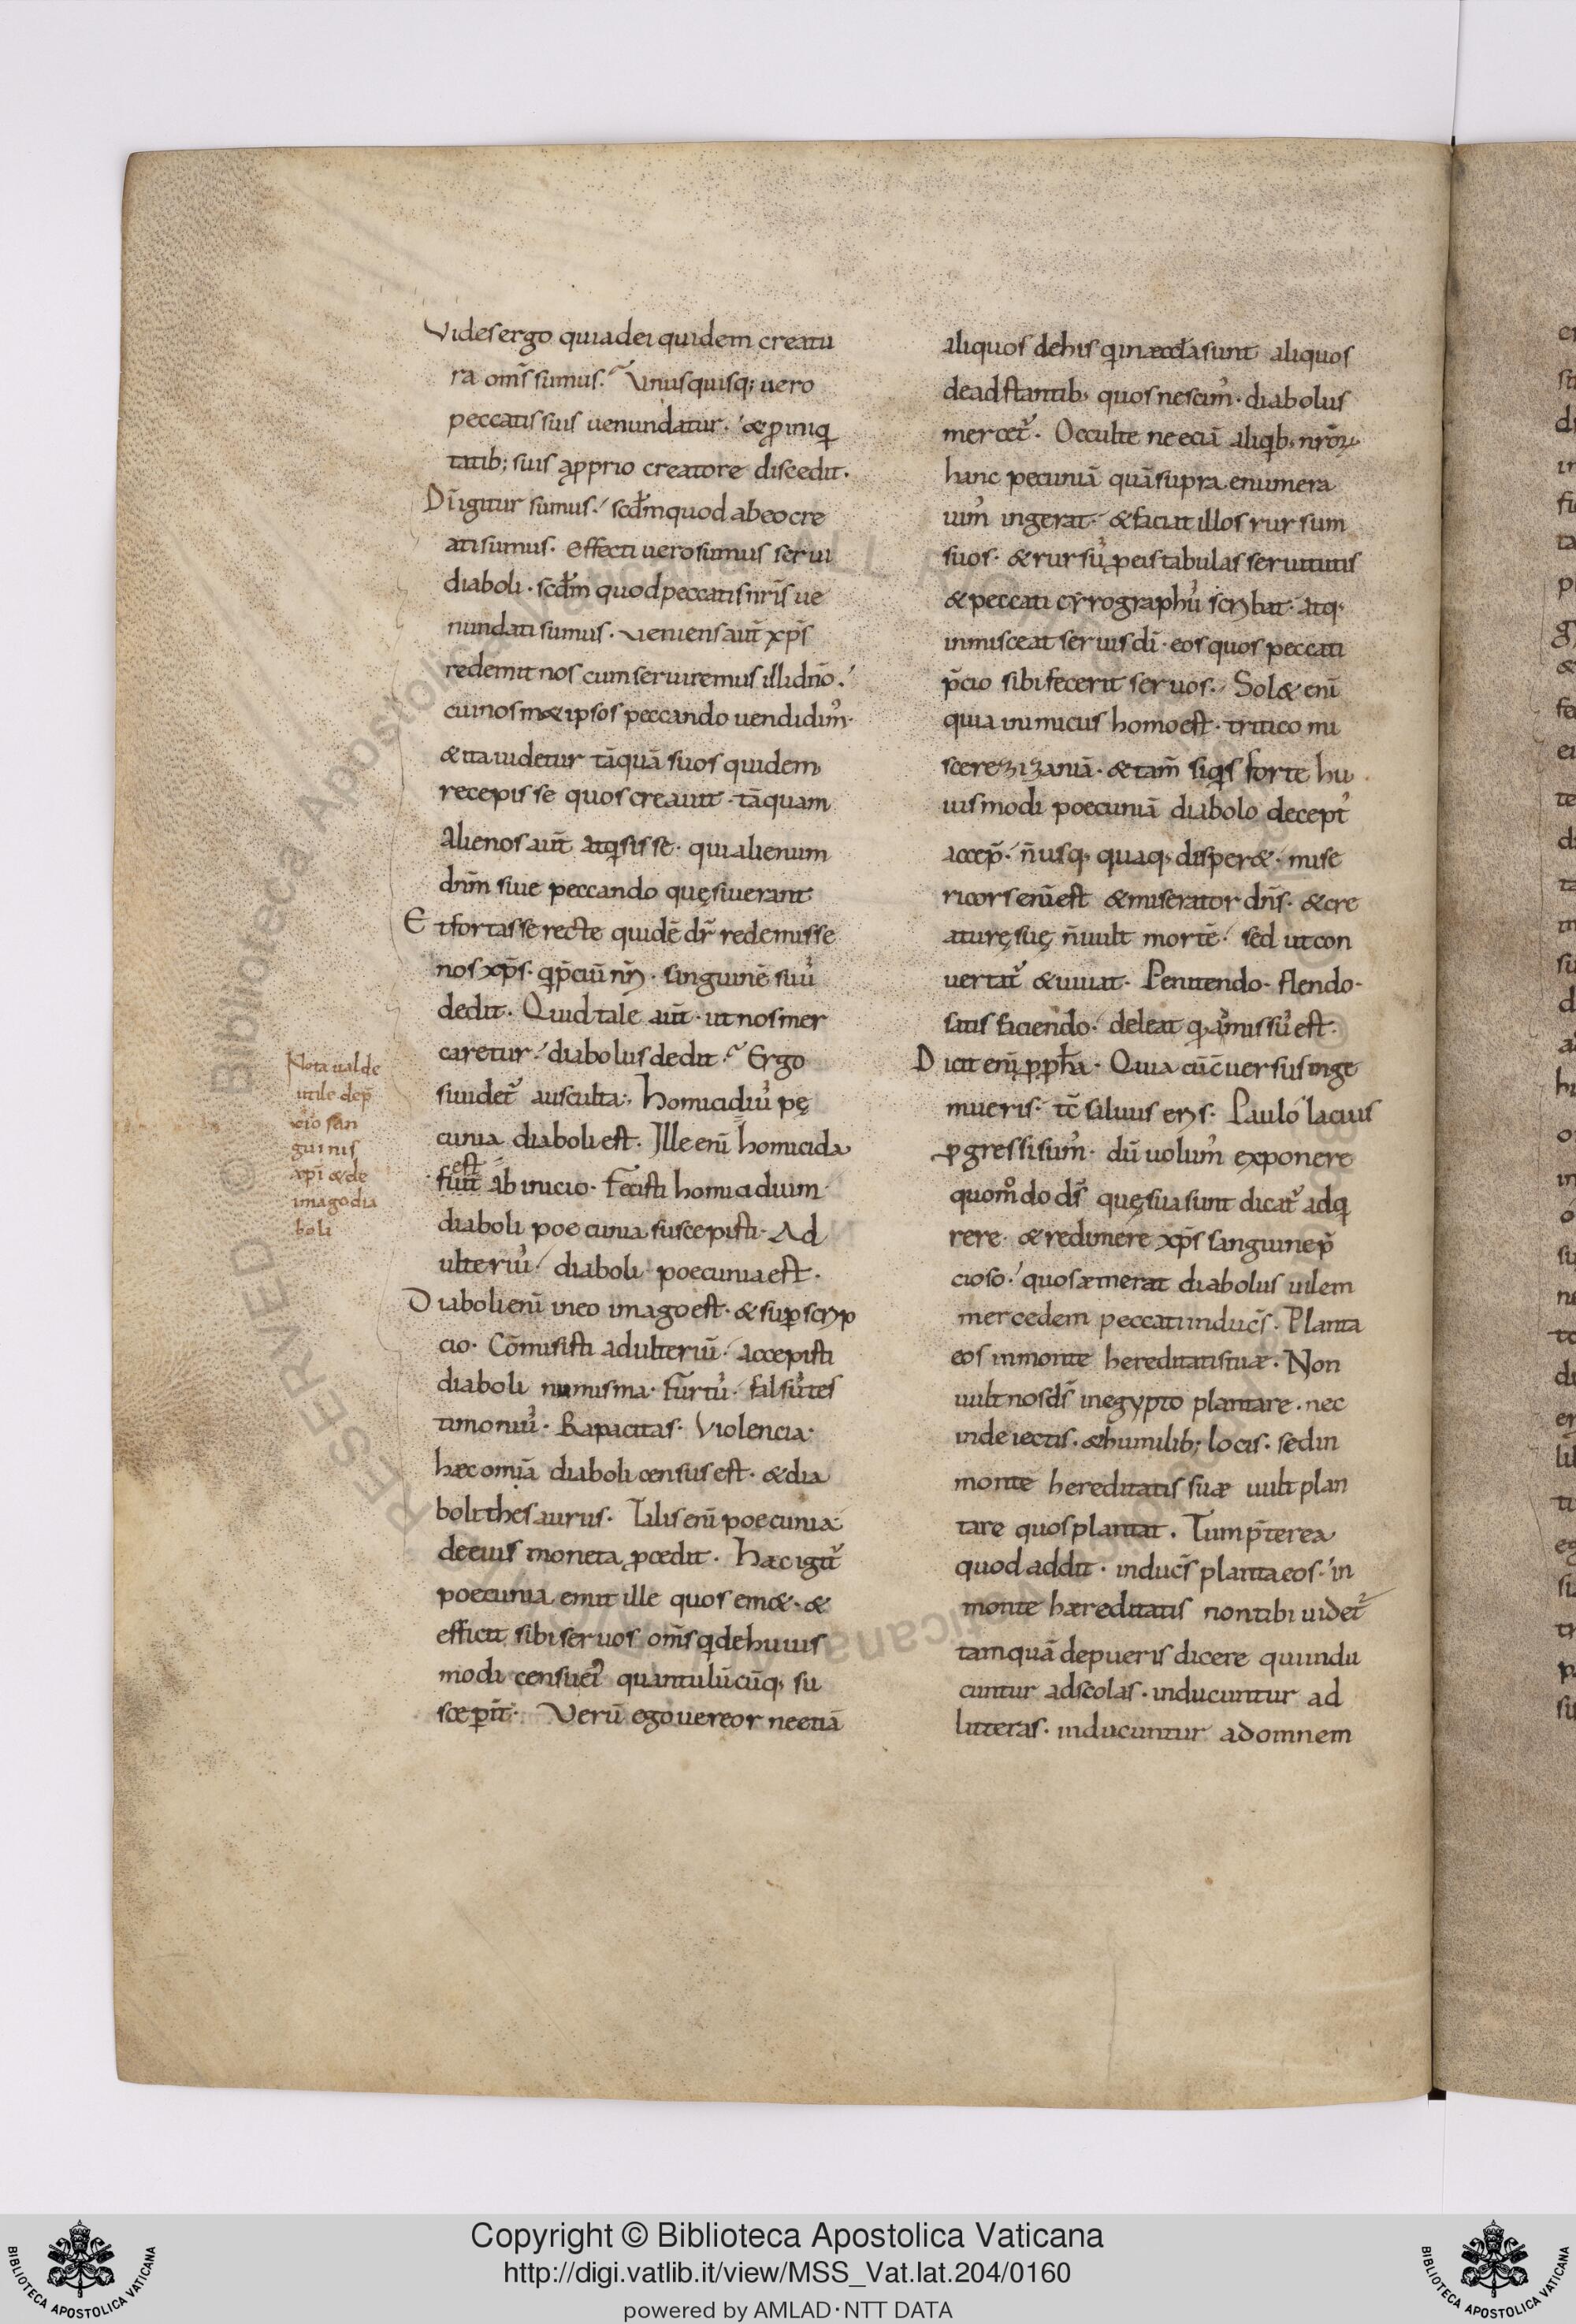 Videsergo quiadei quidem creatu
ra om̅s sumus. Vnusquisq; uero
peccatis suis uenundatur. & ꝓ iniq
tatib; suis a ꝓprio creatore discedit.
Di̅ igitur sumus. scd̅m quod abeo cre
ati sumus. Effecti uero sumus serui
diaboli. scd̅m quod peccatis nr̅is ue
nundati sumus. Veniens aut̅ xp̅s
redemit nos cum seruiremus illi dn̅o.
cui nosm& ipsos peccando uendidim᾽.
& ita uidetur ta̅qua̅ suos quidem
recepisse quos creauit. ta̅quam
alienos aut̅ atqsisse. qui alienum
dnm̅ siue peccando quęsiuerant
Et fortasse recte quide̅ dr̅ redemisse
nos xp̅s. q p̅ciu̅ nr̅m. sanguine̅ suu̅
dedit. Quid tale aut̅. ut nos mer
caretur. diabolus dedit. Ergo
siuidet᾽ ausculta. Homicidiu̅ pę
cunia diaboli est. Ille eni̅ homicida
est
fuit ab inicio. Fecisti homicidium
diaboli poecunia suscepisti. Ad
ulteriu̅ diaboli poecunia est.
Diaboli eni̅ ineo imago est. & suꝑscrip
cio. Co̅misisti adulteriu̅. accepisti
diaboli numisma. Furtu̅. falsu̅ tes
timoniu̅. Rapacitas. Violencia.
haec omia̅ diaboli census est. & dia
boli thesaurus. Talis eni̅ poecunia
deeius moneta ꝓcedit. Haec igit᾽
poecunia emit ille quos em&. &
efficit sibi seruos. om̅s q de huius
modi censu ei᾽ quantulu̅cu̅q; su
sceper̅t. Veru̅ ego uereor ne etia̅
Nota ualde
utile de p̅
cio san
guinis
xp̅i & de
imago dia
boli
aliquos de his q in aeccl̅a sunt aliquos
de adstantib; quos nescim᾽. diabolus
mercet᾽. Occulte ne ecia̅ aliqb; nr̅oꝝ
hanc pecunia̅ qua̅ supra enumera
uim᾽ ingerat. & faciat illos rursum
suos. & rursu̅ ꝑ eis tabulas seruitutis
& peccati cyrographu̅ scribat. atq;
inmisceat seruis di̅. eos quos peccati
p̅cio sibi fecerit seruos. Sol& eni̅
quia inimicus homo est. tritico mi
scere zizania̅. & tam̅ siqs forte hu
uismodi poecunia̅ diabolo decept᾽
accep̅. n̅ usq; quaq; disper&. mise
ricors eni̅ est & miserator dn̅s. & cre
aturę suę n̅ uult morte̅. sed ut con
uertat᾽ & uiuat. Penitendo. flendo.
satis faciendo. deleat q amissu̅ est.
Dicit eni̅ ꝑ ꝓph̅a. Quia cu̅ c̅uersus inge
mueris. tc̅ saluus eris. Paulo lacius
ꝓgressi sum᾽. du̅ uolum᾽ exponere
quom̊do ds̅ quę sua sunt dicat᾽ adq
rere. & redimere xp̅s sanguine p̅
cioso. quos aemerat diabolus uilem
mercedem peccati induc̅s. Planta
eos in monte hereditatis tuae. Non
uult nos ds̅ in egypto plantare. nec
in deiectis. & humilib; locis. sed in
monte̅ hereditatis suae uult plan
tare quos plantat. Tum p̅terea
quod addit. induc̅s planta eos. in
monte haereditatis non tibi uidet᾽
tamqua̅ de pueris dicere qui indu
cuntur adscolas. inducuntur ad
litteras. inducuntur ad omnem
Copyright © Biblioteca Apostolica Vaticana
http://digi.vatlib.it/view/MSS_Vat.lat.204/0160
powered by AMLAD·NTT DATA